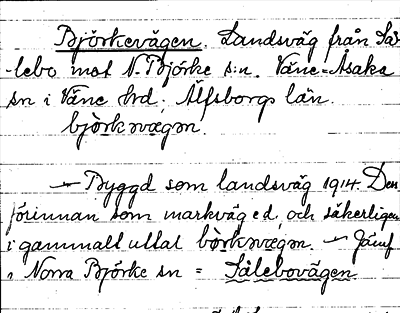 Björkevägen. Landsväg från Så-
lebo mot N. Björke s:n. Väne-Åsaka
sn i Väne hrd, Älfsborgs län.
björkvægən.
— Byggd som landsväg 1914. Den
förinnan som markväg ed, och säkerligen
i gammalt uttal börkvægən. — Jämf
i Norra Björke sn = Sålebovägen.